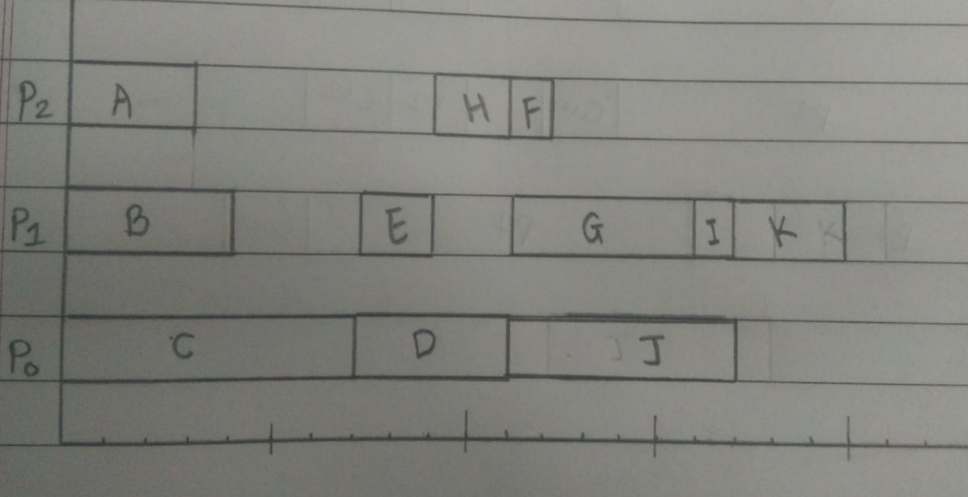 P2 A H F
P1 B E G I K
P0 C D J